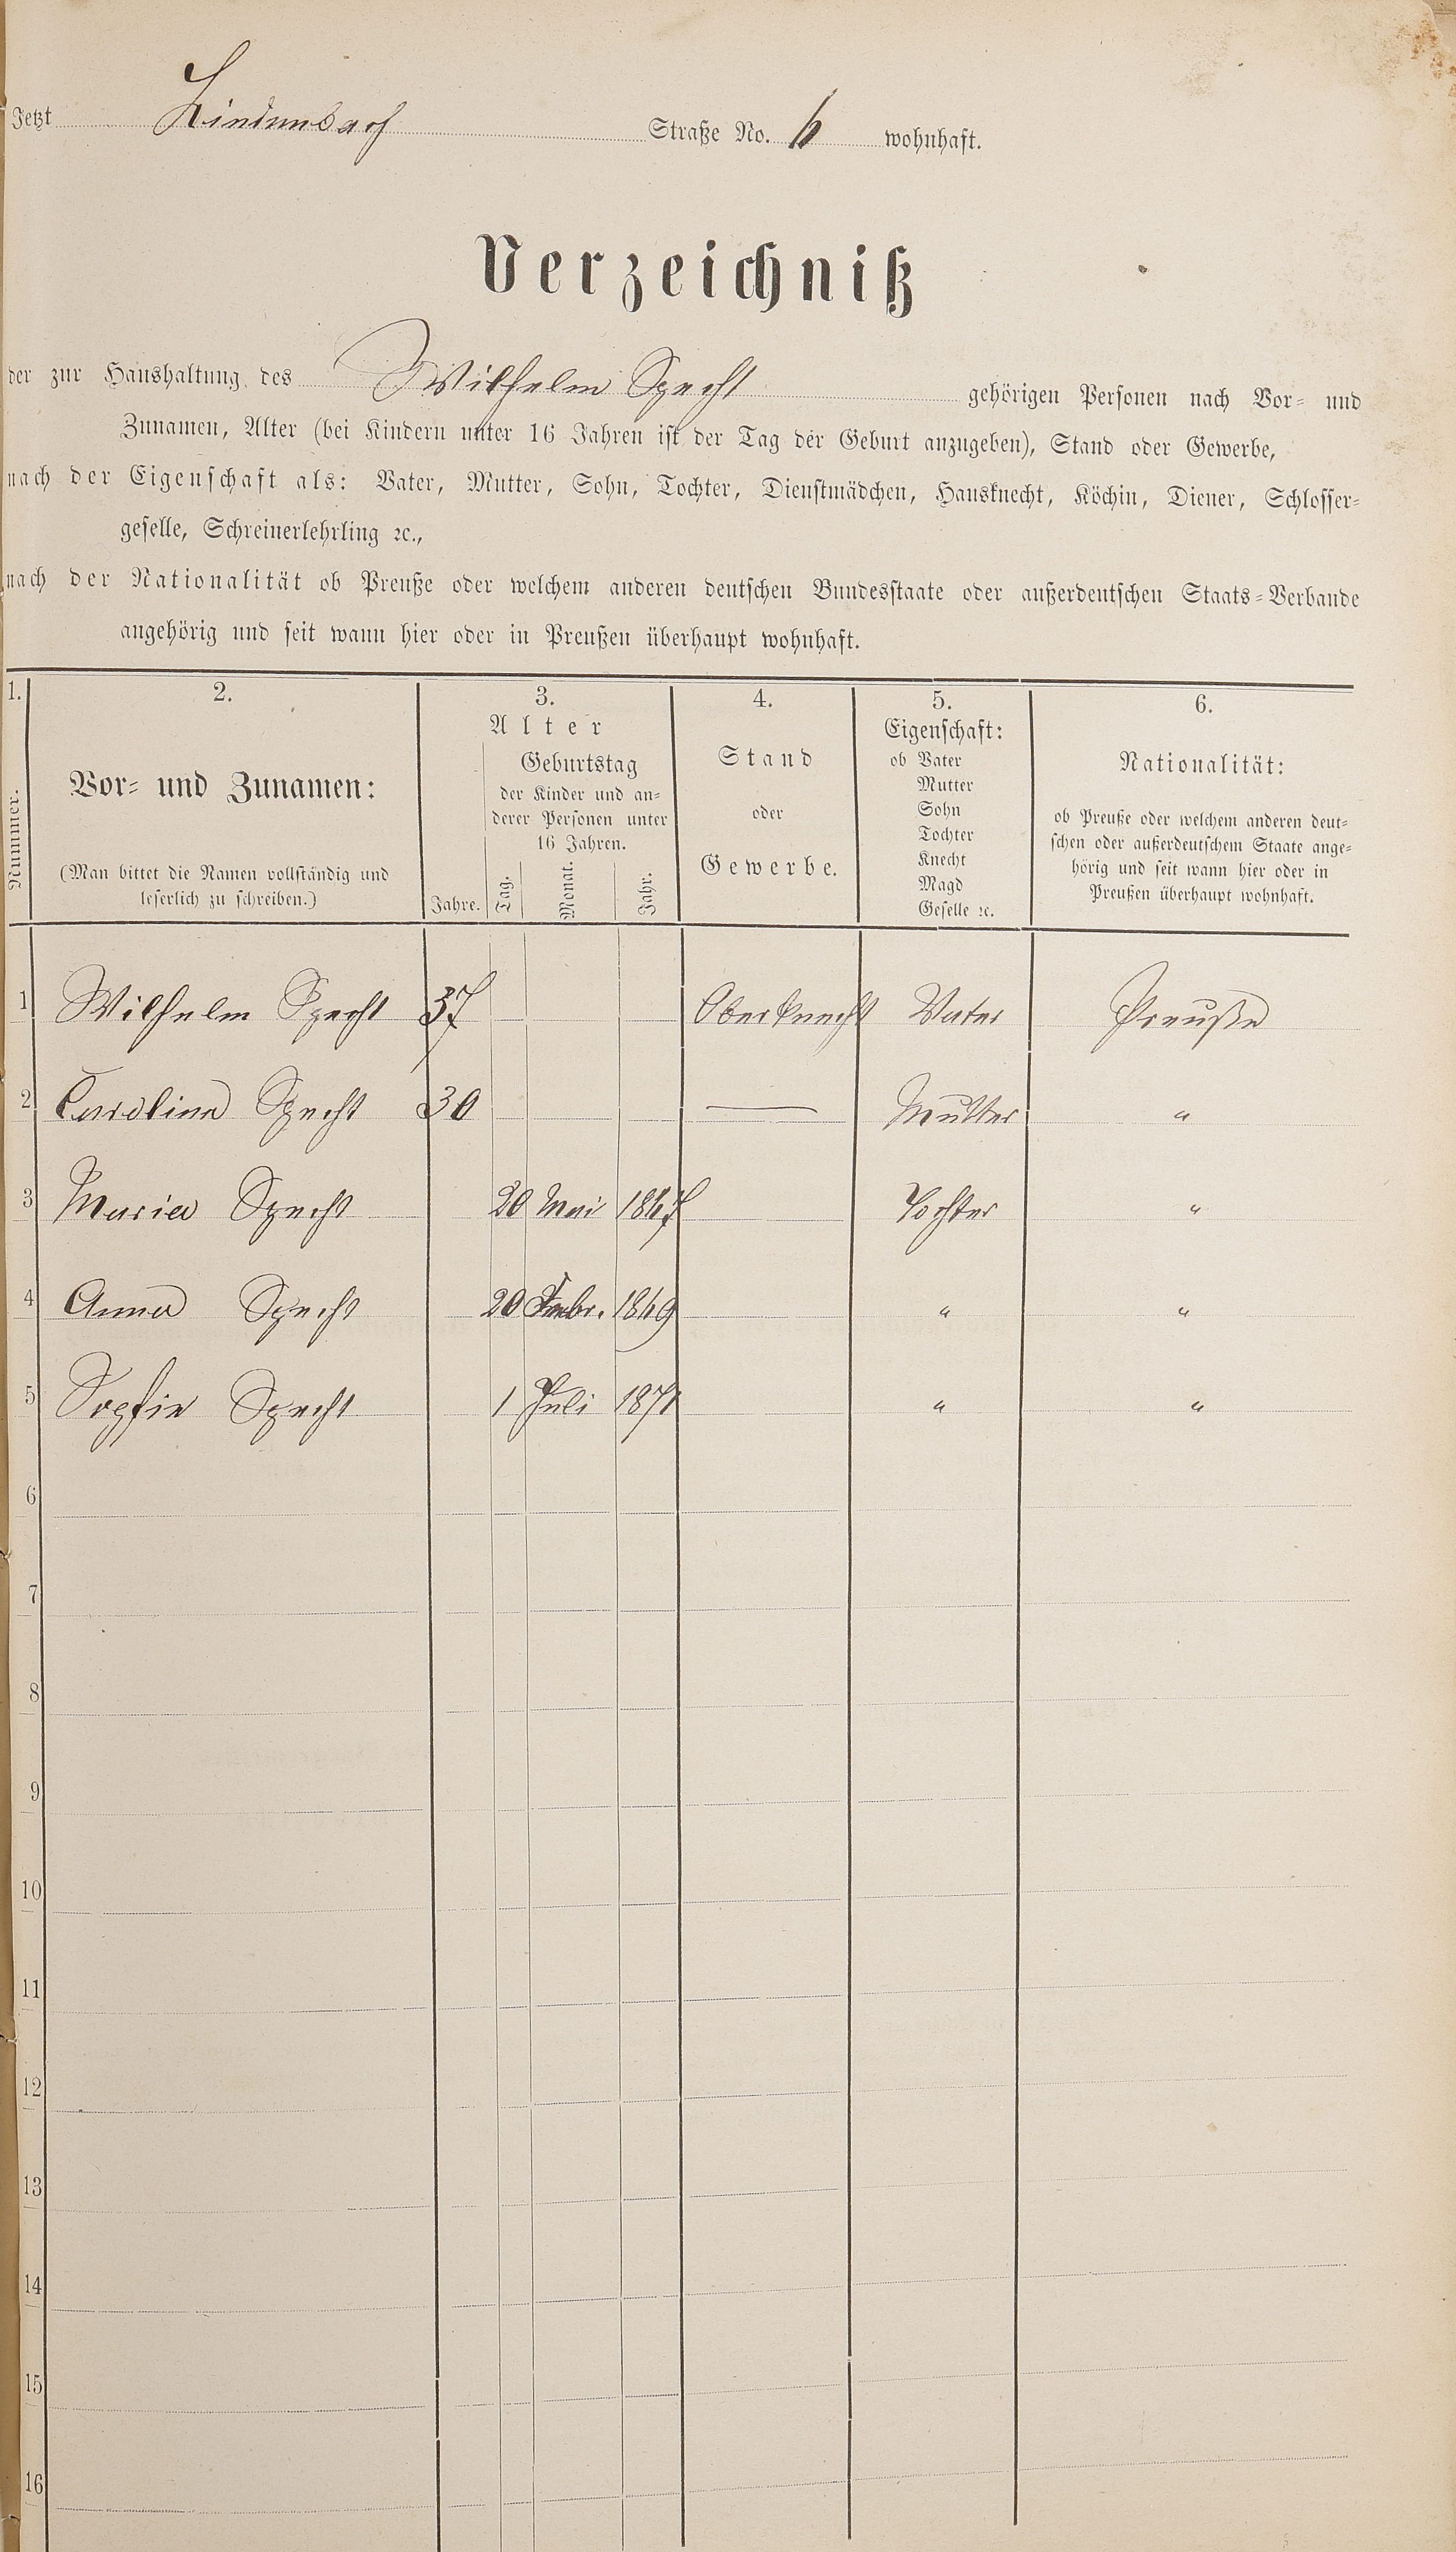 Jetzt Lindenbach Straße No. 6 wohnhaft.
Verzeichniß
der zur Haushaltung des Wilhelm Specht gehörigen Personen nach Vor- und
Zunamen, Alter (bei Kindern unter 16 Jahren ist der Tag der Geburt anzugeben), Stand oder Gewerbe,
nach der Eigenschaft als: Vater, Mutter, Sohn, Tochter, Dienstmädchen, Hausknecht, Köchin, Diener, Schlosser-
geselle, Schreinerlehrling ꝛc.,
nach der Nationalität ob Preuße oder welchem anderen deutschen Bundesstaate oder außerdeutschen Staats-Verbande
angehörig und seit wann hier oder in Preußen überhaupt wohnhaft.
1.
Nummer.
2.
Vor- und Zunamen:
(Man bittet die Namen vollständig und
leserlich zu schreiben.)
3.
Alter
Geburtstag
der Kinder und an-
derer Personen unter
16 Jahren.
Jahre. Tag. Monat. Jahr.
4.
Stand
oder
Gewerbe.
5.
Eigenschaft:
ob Vater
Mutter
Sohn
Tochter
Knecht
Magd
Geselle ꝛc.
6.
Nationalität:
ob Preuße oder welchem anderen deut-
schen oder außerdeutschem Staate ange-
hörig und seit wann hier oder in
Preußen überhaupt wohnhaft.
1 Wilhelm Specht 37 Oberknecht Vater Preuße
2 Carolina Specht 30 — Mutter "
3 Maria Specht 20 Mai 1867 Tochter "
4 Anna Specht 20 1869 " "
5 Sophie Specht 1 Juli 1871 " "
6
7
8
9
10
11
12
13
14
15
16